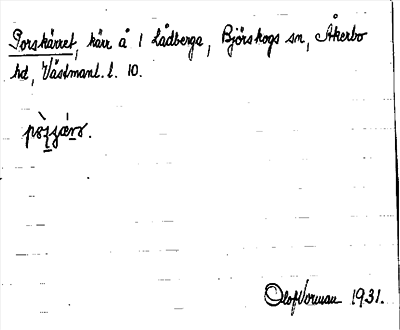 Porskärret, kärr å 1 Lådberga, Björskogs sn, Åkerbo
hd, Västmanl. l. 10.
Olof Vorman 1931.